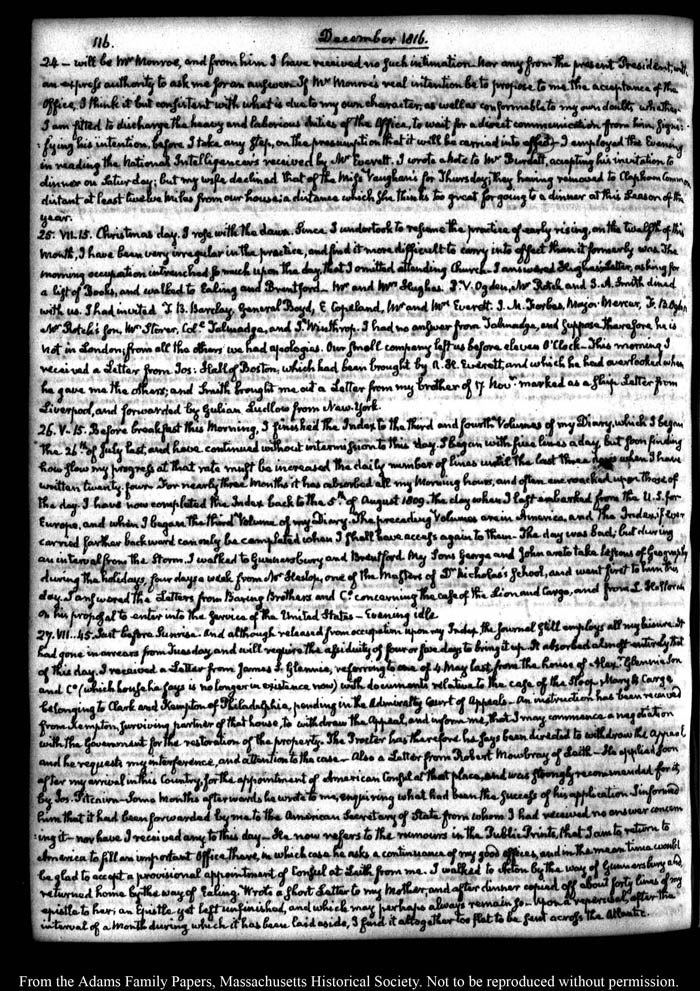 116. December 1816.
24 — will be Mr Monroe, and from him I have received no such intimation. Nor any from the present President, with
an express authority to ask me for an answer. If Mr Monroe's real intention be to propose to me the acceptance of the
Office, I think it but consistent with what is due to my own character, as well as conformable to my own doubts whether
I am fitted to discharge the heavy and laborious duties of the Office, to wait for a direct communication from him, signi-
:fying his intention, before I take any step, on the presumption that it will be carried into effect — I employed the Evening
in reading the National Intelligencers received by Mr Everett. I wrote a note to Mr Bundatt, accepting his invitation to
dinner on Saturday; but my wife declined that of the Miss Vaughan's for Thursday; they having removed to Clapham Common
distant at least twelve miles from our house: a distance which she thinks too great for going to a dinner at this Season of the
year.
25. VII.15. Christmas day. I rose with the dawn. Since I undertook to resume the practice of early rising, on the twelfth of this
Month, I have been very irregular in the practice, and find it more difficult to carry into effect than it formerly was. The
morning occupation intrenched so much upon the day, that I omitted attending Church. I answered Hughes's Letter, asking for
a list of Books, and walked to Ealing and Brentford. Mr and Mrs Hughes. P. V. Ogden, Mr Rotch and S. A. Smith dined
with us. I had invited T. B. Barclay, General Boyd, E. Copeland, Mr and Mrs Everett. J. M. Forbes, Major Mercer, F. B. Ogden
Mr Rotch's Son, Mr Storer, Col. Talmadge, and J. Winthrop. I had no answer from Talmadge, and suppose therefore he is
not in London; from all the others we had apologies. Our small company left us before eleven O'Clock — This morning I
received a Letter from Jos: Hall of Boston, which had been brought by A. H. Everett, and which he had overlooked when
he gave me the others; and Smith brought me out a Letter from my brother of 17 Nov. marked as a Ship Letter from
Liverpool, and forwarded by Gulian Ludlow from New-York.
26. V.15. Before breakfast this Morning, I finished the Index to the third and fourth Volumes of my Diary, which I began
the 26th of July last, and have continued without intermission to this day. I began with five lines a day, but soon finding
how slow my progress at that rate must be increased the daily number of lines until the last three days when I have
written twenty-four. For nearly three Months it has absorbed all my Morning hours, and often encroached upon those of
the day. I have now completed the Index back to the 5th of August 1809. the day when I last embarked from the U.S. for
Europe, and when I began the third Volume of my Diary. The preceding Volumes are in America, and the Index if ever
carried farther backward can only be completed when I shall have access again to them — The day was bad; but during
an interval from the Storm, I walked to Gunnersbury and Brentford. My Sons George and John are to take lessons of Geography
during the holidays, four days a week from Mr Heslop, one of the Masters of Dr Nicholas's School, and went first to him this
day. I answered the Letters from Baring Brothers and Co. concerning the case of the Lion and Cargo, and from L.
on his proposal to enter into the service of the United States — Evening idle
27. VII.45. Just before Sunrise. And although released from occupation upon my Index, the Journal still employs all my leisure. It
had gone in arrears from Tuesday, and will require the assiduity of four or five days to bring it up. It absorbed almost entirely that
of this day. I received a Letter from James S. Glennie, referring to one of 4 May last, from the house of Alexr. Glennie Son
and Co (which house he says is no longer in existence now) with documents relative to the case of the Sloop Mary & Cargo
belonging to Clark and Kempton of Philadelphia, pending in the Admiralty Court of Appeals — An instruction has been received
from Kempton, surviving partner of that house, to withdraw the Appeal, and inform me, that I may commence a negotiation
with the Government for the restoration of the property. The Procter has therefore he says been directed to withdraw the Appeal
and he requests my interference, and attention to the case — Also a Letter from Robert Mowbray of Leith — He applied soon
after my arrival in this Country, for the appointment of American Consul at that place, and was strongly recommended for it
by Jos. Pitcairn — Some Months afterwards he wrote to me, enquiring what had been the success of his application. I informed
him that it had been forwarded by me to the American Secretary of State from whom I had received no answer concern
:ing it — nor have I received any to this day — He now refers to the rumours in the Public Prints, that I am to return to
America to fill an important Office there, in which case he asks a continuance of my good offices, and in the mean time would
be glad to accept a provisional appointment of Consul at Leith from me. I walked to Acton by the way of Gunnersbury and
returned home by the way of Ealing. Wrote a short Letter to my Mother, and after dinner copied off about forty lines of my
epistle to her; an Epistle yet left unfinished, and which may perhaps always remain so — Upon a reperusal, after the
interval of a Month during which it has been laid aside, I find it altogether too flat to be sent across the Atlantic.
From the Adams Family Papers, Massachusetts Historical Society. Not to be reproduced without permission.